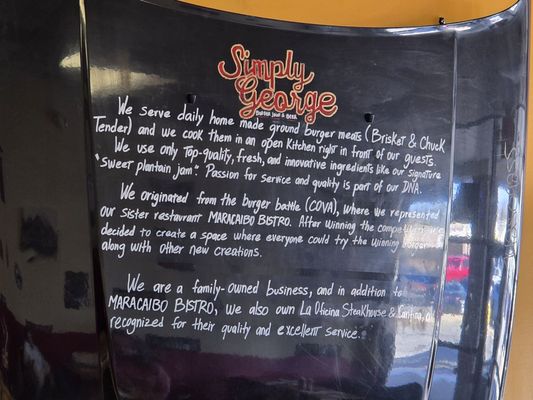 Simply
George
BURGER JOINT & BEER
We serve daily home made ground burger meats (Brisket & Chuck
Tender) and we cook them in an open Kitchen right in front of our guests.
We use only Top-quality, fresh, and innovative ingredients like our signature
"sweet plantain jam". Passion for service and quality is part of our DNA.
We originated from the burger battle (COVA), where we represented
our sister restaurant MARACAIBO BISTRO. After winning the
decided to create a space where everyone could try the winning
along with other new creations.
We are a family-owned business, and in addition to
MARACAIBO BISTRO, we also own La Oficina Steakhouse & Cantina,
recognized for their quality and excellent service.